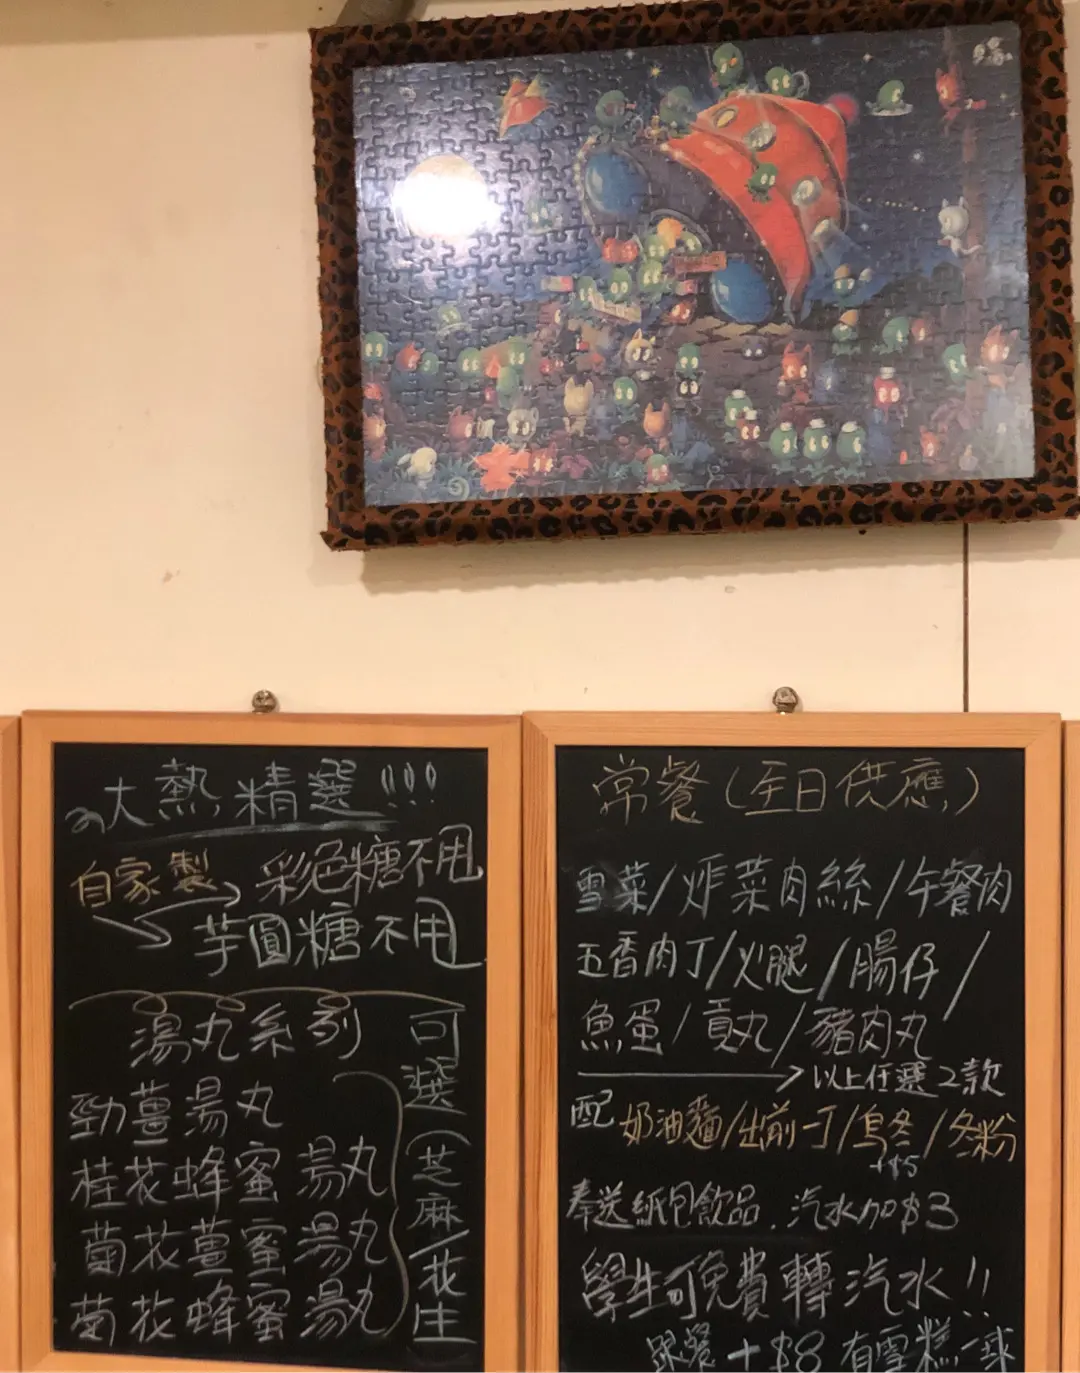 大熱精選!!!
自家製 彩色糖不甩
芋圓糖不甩
湯丸系列
勁薑湯丸
桂花蜂蜜湯丸
菊花薑蜜湯丸
菊花蜂蜜湯丸
可選(芝麻/花生
常餐(全日供應)
雪菜/炸菜肉絲/午餐肉
五香肉丁/火腿/腸仔/
魚蛋/貢丸/豬肉丸
以上任選2款
配 奶油麵/出前一丁/烏冬/冬粉
+$5
奉送紙包飲品.汽水加$3
學生可免費轉汽水!!
跟餐+$8有雪糕一球